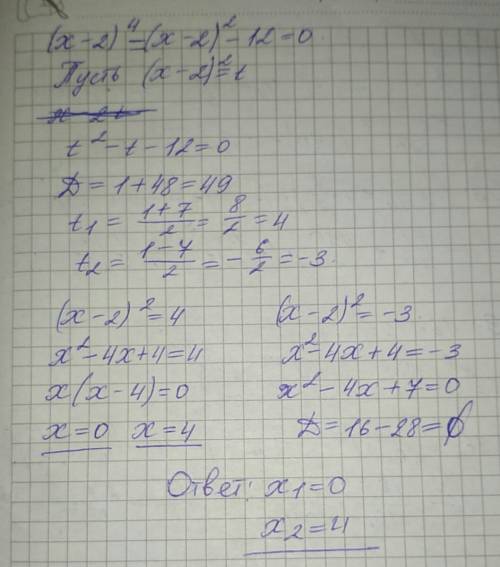 (x-2)⁴-(x-2)²-12=0
Пусть (x-2)²=t
t²-t-12=0
Д=1+48=49
t₁=(1+7)/2=8/2=4
t₂=(1-7)/2=-6/2=-3
(x-2)²=4
x²-4x+4=4
x(x-4)=0
x=0 x=4
(x-2)²=-3
x²-4x+4=-3
x²-4x+7=0
Д=16-28=
Ответ: x₁=0
x₂=4